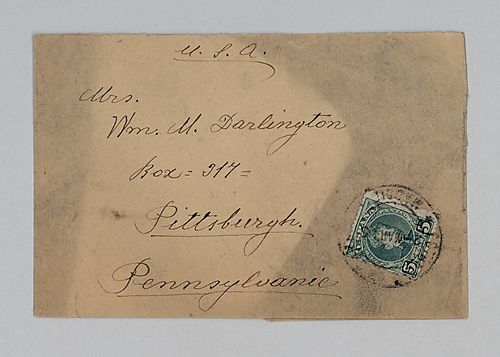 U. S. A.
Mrs.
Wm. M. Darlington
Box = 317 =
Pittsburgh.
Pennsylvanie
5 5